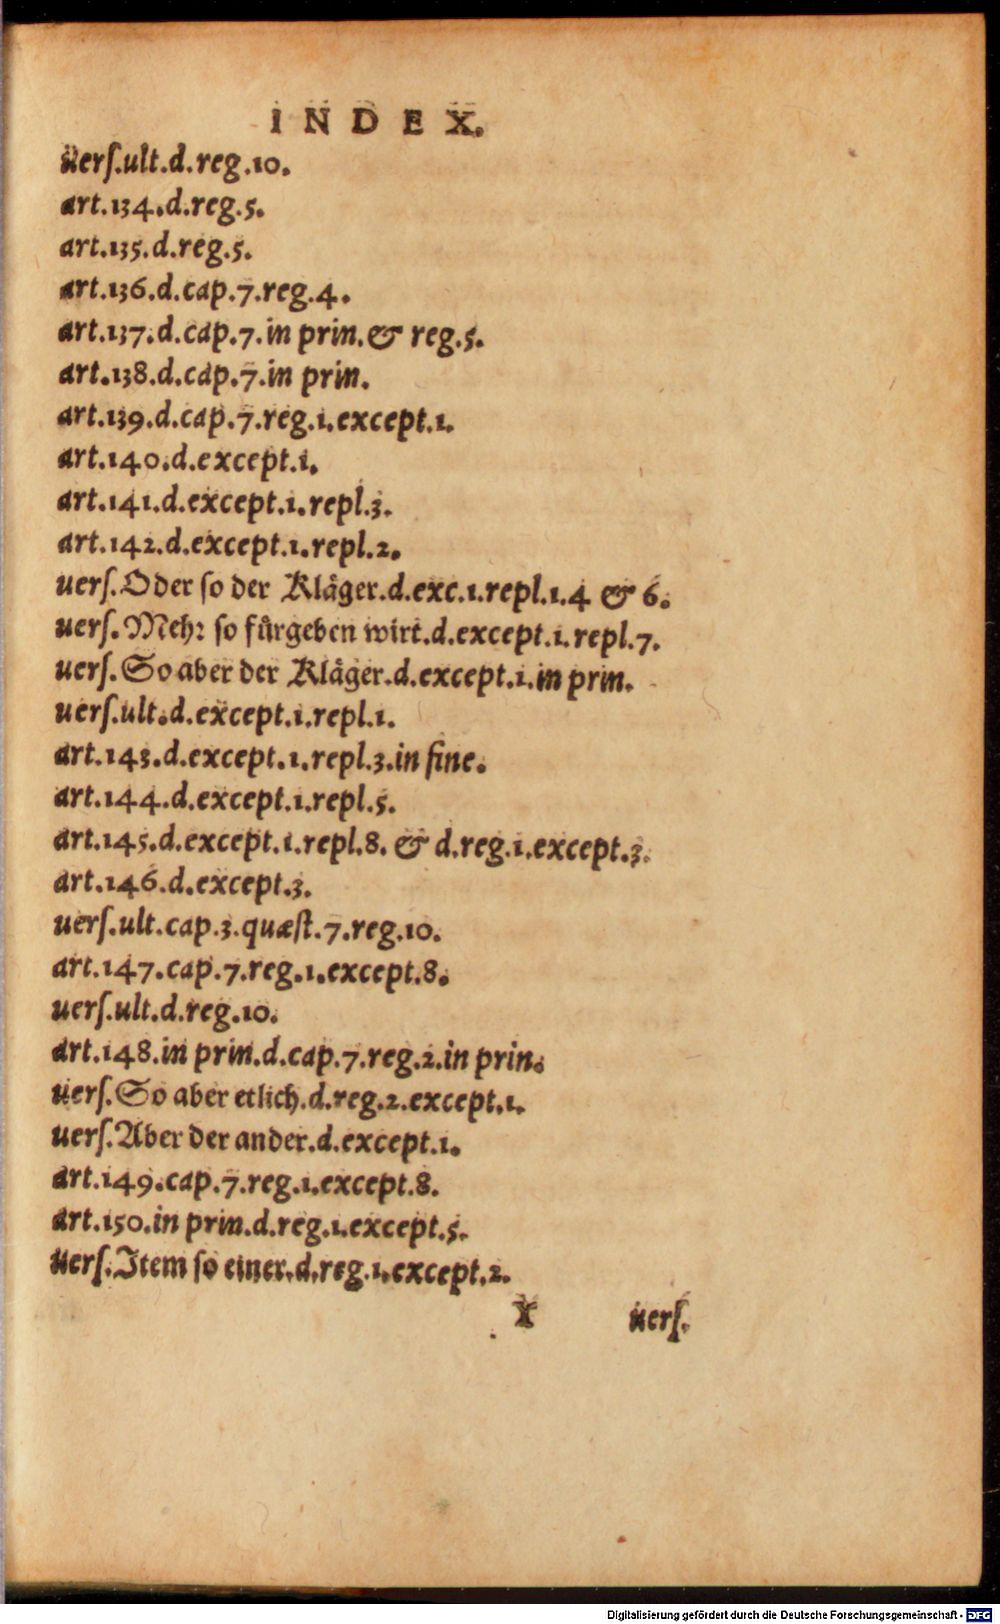 INDEX.
uerſ.ult.d.reg.10.
art.134.d.reg.5.
art.135.d.reg.5.
art.136.d.cap.7.reg.4.
art.137.d.cap.7.in prin.& reg.5.
art.138.d.cap.7.in prin.
art.139.d.cap.7.reg.1.except.1.
art.140.d.except.1.
art.141.d.except.1.repl.3.
art.142.d.except.1.repl.2.
uerſ.Oder ſo der Kläger.d.exc.1.repl.1.4 & 6.
uerſ.Mehr ſo fürgeben wirt.d.except.1.repl.7.
uerſ.So aber der Kläger.d.except.1.in prin.
uerſ.ult.d.except.1.repl.1.
art.143.d.except.1.repl.3.in fine.
art.144.d.except.1.repl.5.
art.145.d.except.1.repl.8. & d.reg.1.except.3.
art.146.d.except.3.
uerſ.ult.cap.3.quæſt.7.reg.10.
art.147.cap.7.reg.1.except.8.
uerſ.ult.d.reg.10.
art.148.in prin.d.cap.7.reg.2.in prin.
uerſ.So aber etlich.d.reg.2.except.1.
uerſ.Aber der ander.d.except.1.
art.149.cap.7.reg.1.except.8.
art.150.in prin.d.reg.1.except.5.
uerſ.Item ſo einer.d.reg.1.except.2.
X uerſ.
Digitalisierung gefördert durch die Deutsche Forschungsgemeinschaft - DFG